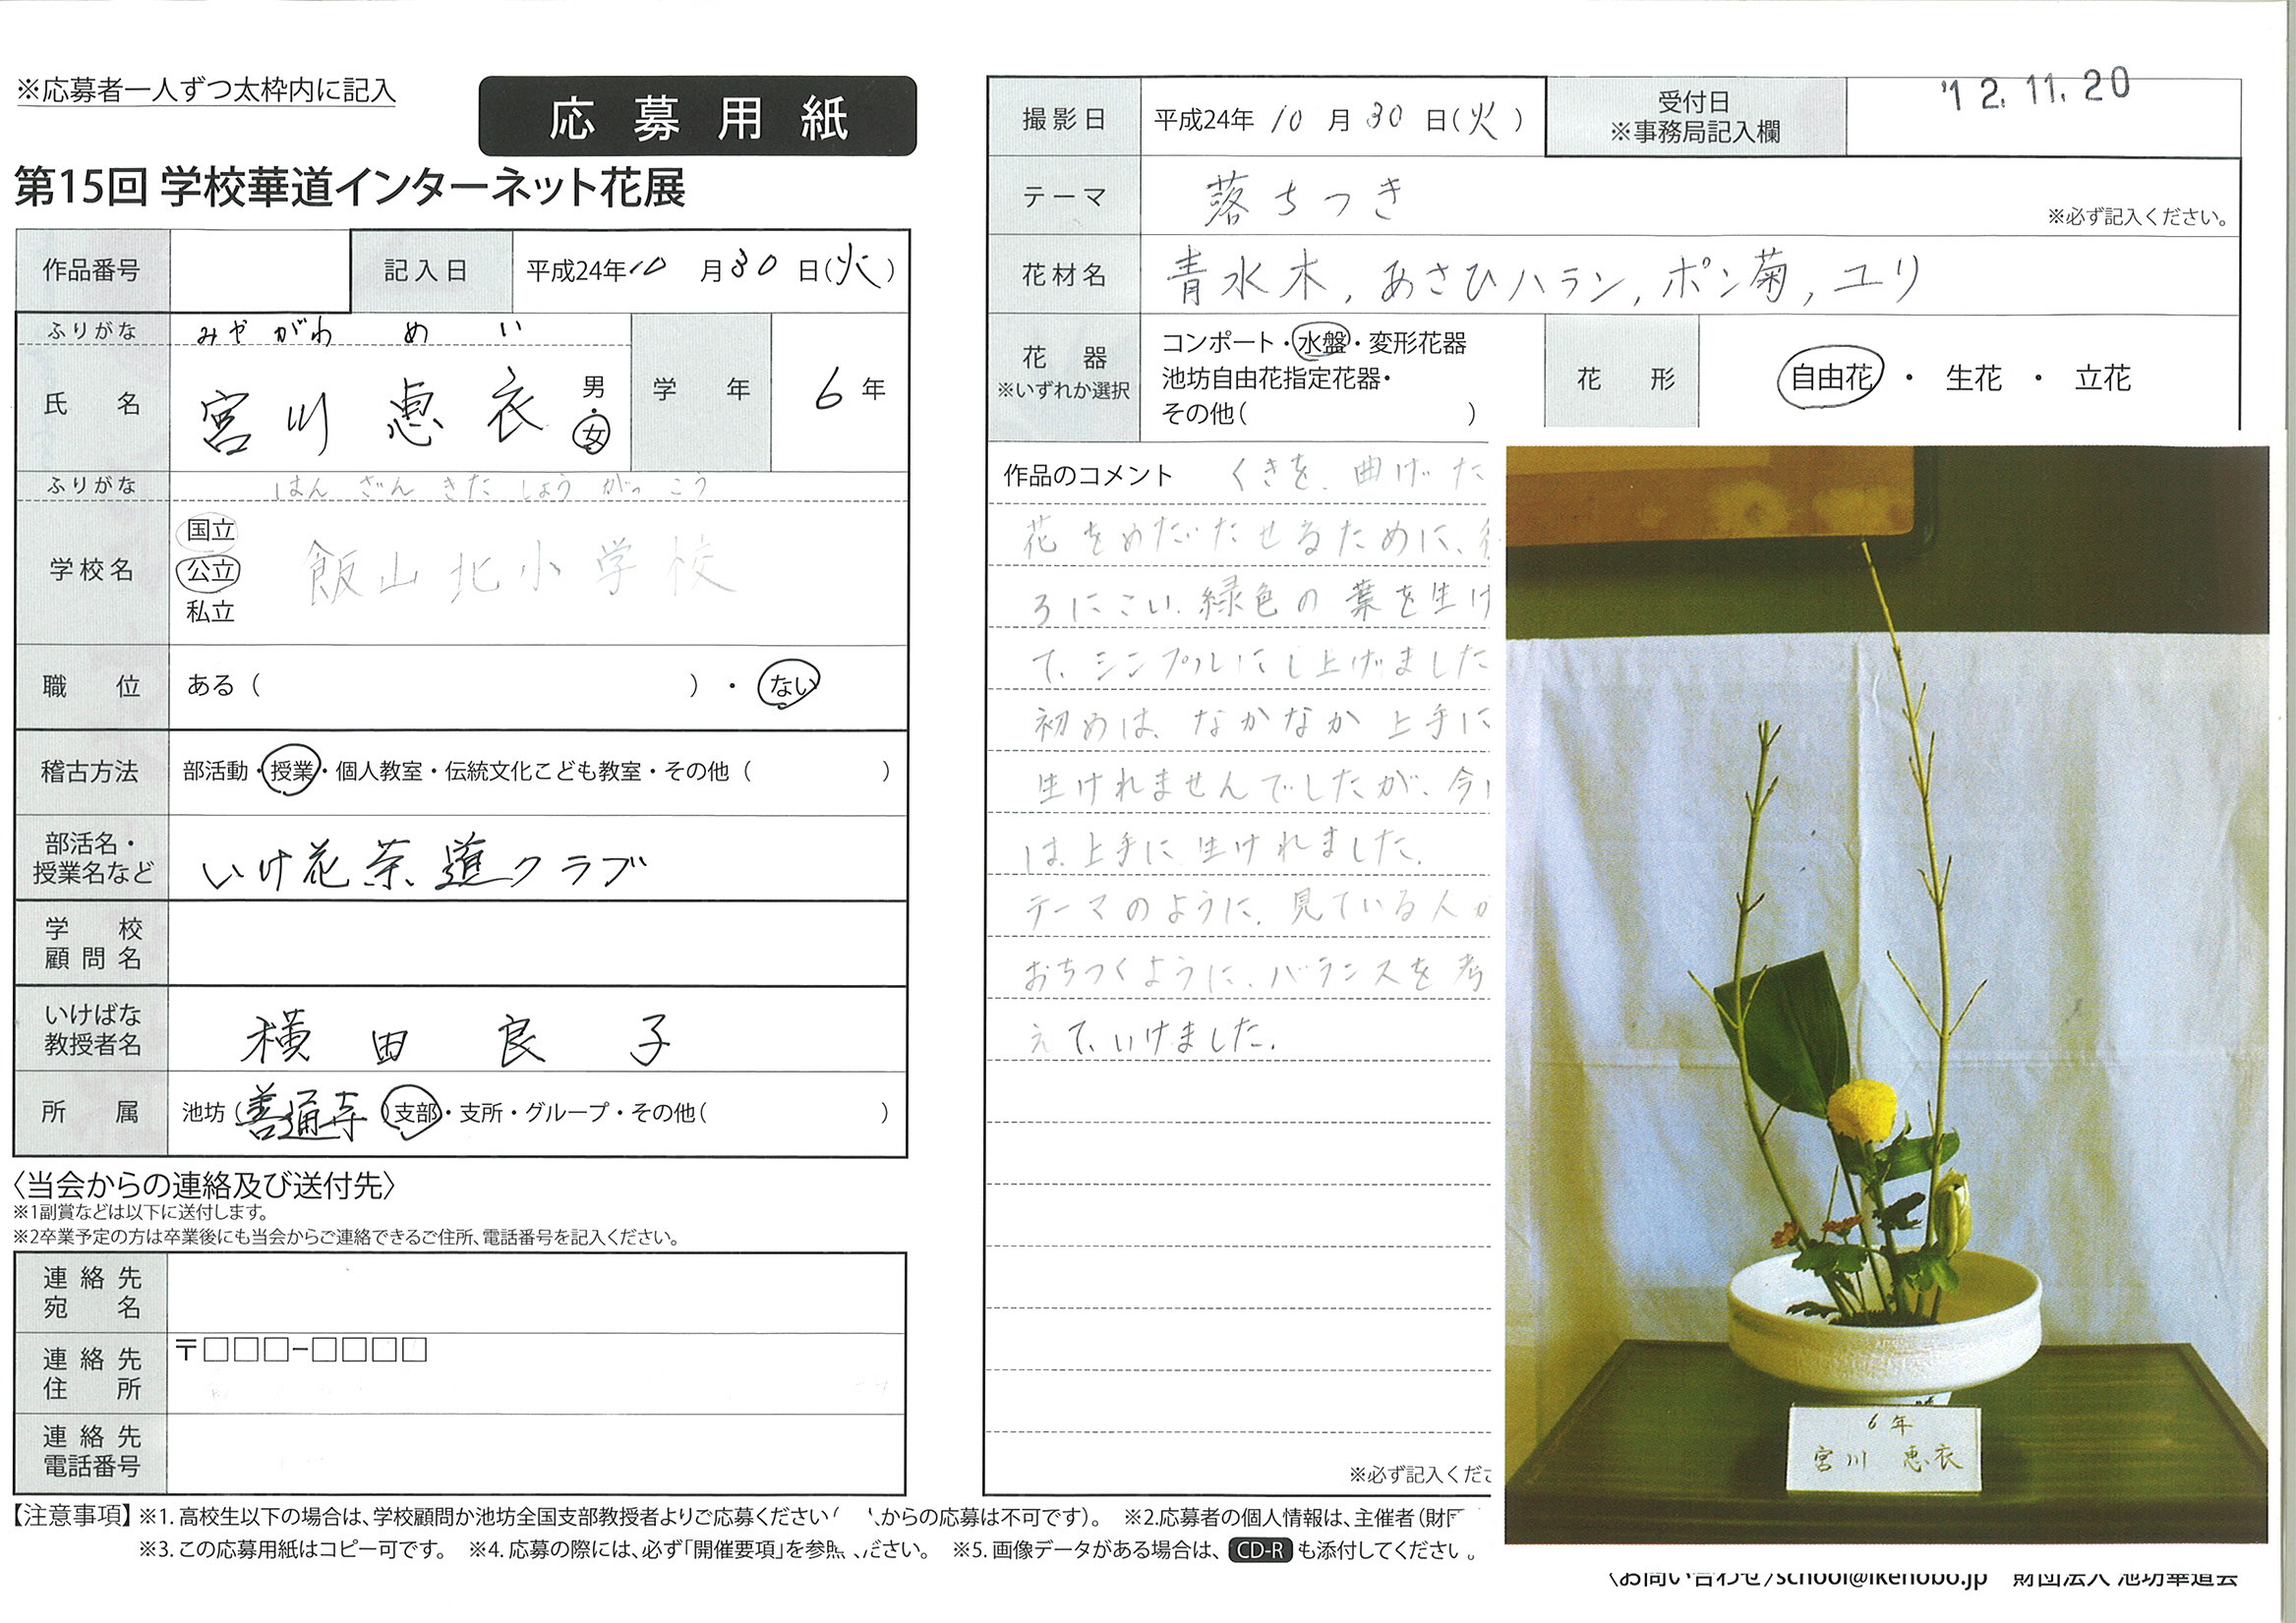 ※応募者一人ずつ太枠内に記入
応募用紙
第15回 学校華道インターネット花展
作品番号
記入日 平成24年10月30日(火)
ふりがな みやがわ めい
氏名 宮川 恵衣 男・女
学年 6年
ふりがな はんざんきたしょうがっこう
学校名 国立 公立 私立 飯山北小学校
職位 ある( )・ない
稽古方法 部活動・授業・個人教室・伝統文化こども教室・その他( )
部活名・授業名など いけ花茶道クラブ
学校顧問名
いけばな教授者名 横田良子
所属 池坊(善通寺)支部・支所・グループ・その他( )
〈当会からの連絡及び送付先〉
※1副賞などは以下に送付します。
※2卒業予定の方は卒業後にも当会からご連絡できるご住所、電話番号を記入ください。
連絡先宛名
連絡先住所 〒□□□-□□□□
連絡先電話番号
撮影日 平成24年10月30日(火)
受付日 ※事務局記入欄 '12.11.20
テーマ 落ちつき
※必ず記入ください。
花材名 青水木, あさひハラン, ポン菊, ユリ
花器 ※いずれか選択
コンポート・水盤・変形花器
池坊自由花指定花器・
その他( )
花形 自由花・生花・立花
作品のコメント くきを、曲げた
花をめだたせるために、
ろにこい緑色の葉を生け
て、シンプルにし上げました
初めは、なかなか上手に
生けれませんでしたが、今
は上手に生けれました。
テーマのように、見ている人が
おちつくように、バランスを考
えて、いけました。
※必ず記入くだ
6年
宮川 恵衣
【注意事項】※1.高校生以下の場合は、学校顧問か池坊全国支部教授者よりご応募ください( からの応募は不可です)。 ※2.応募者の個人情報は、主催者(財
※3.この応募用紙はコピー可です。 ※4.応募の際には、必ず「開催要項」を参照ください。 ※5.画像データがある場合は、CD-Rも添付してください。
〈お問い合わせ〉school@ikenobo.jp 財団法人 池坊華道会